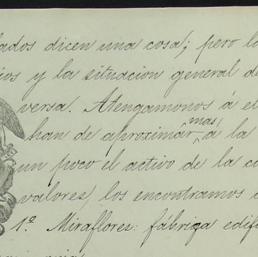 lados dicen una cosa; pero lo
ios y la situacion general de
versa. Atengamonos á e
han de aproximar mas á la
un poco el activo de la c
valores, los encontramos
1.º Miraflores: fábriga edif